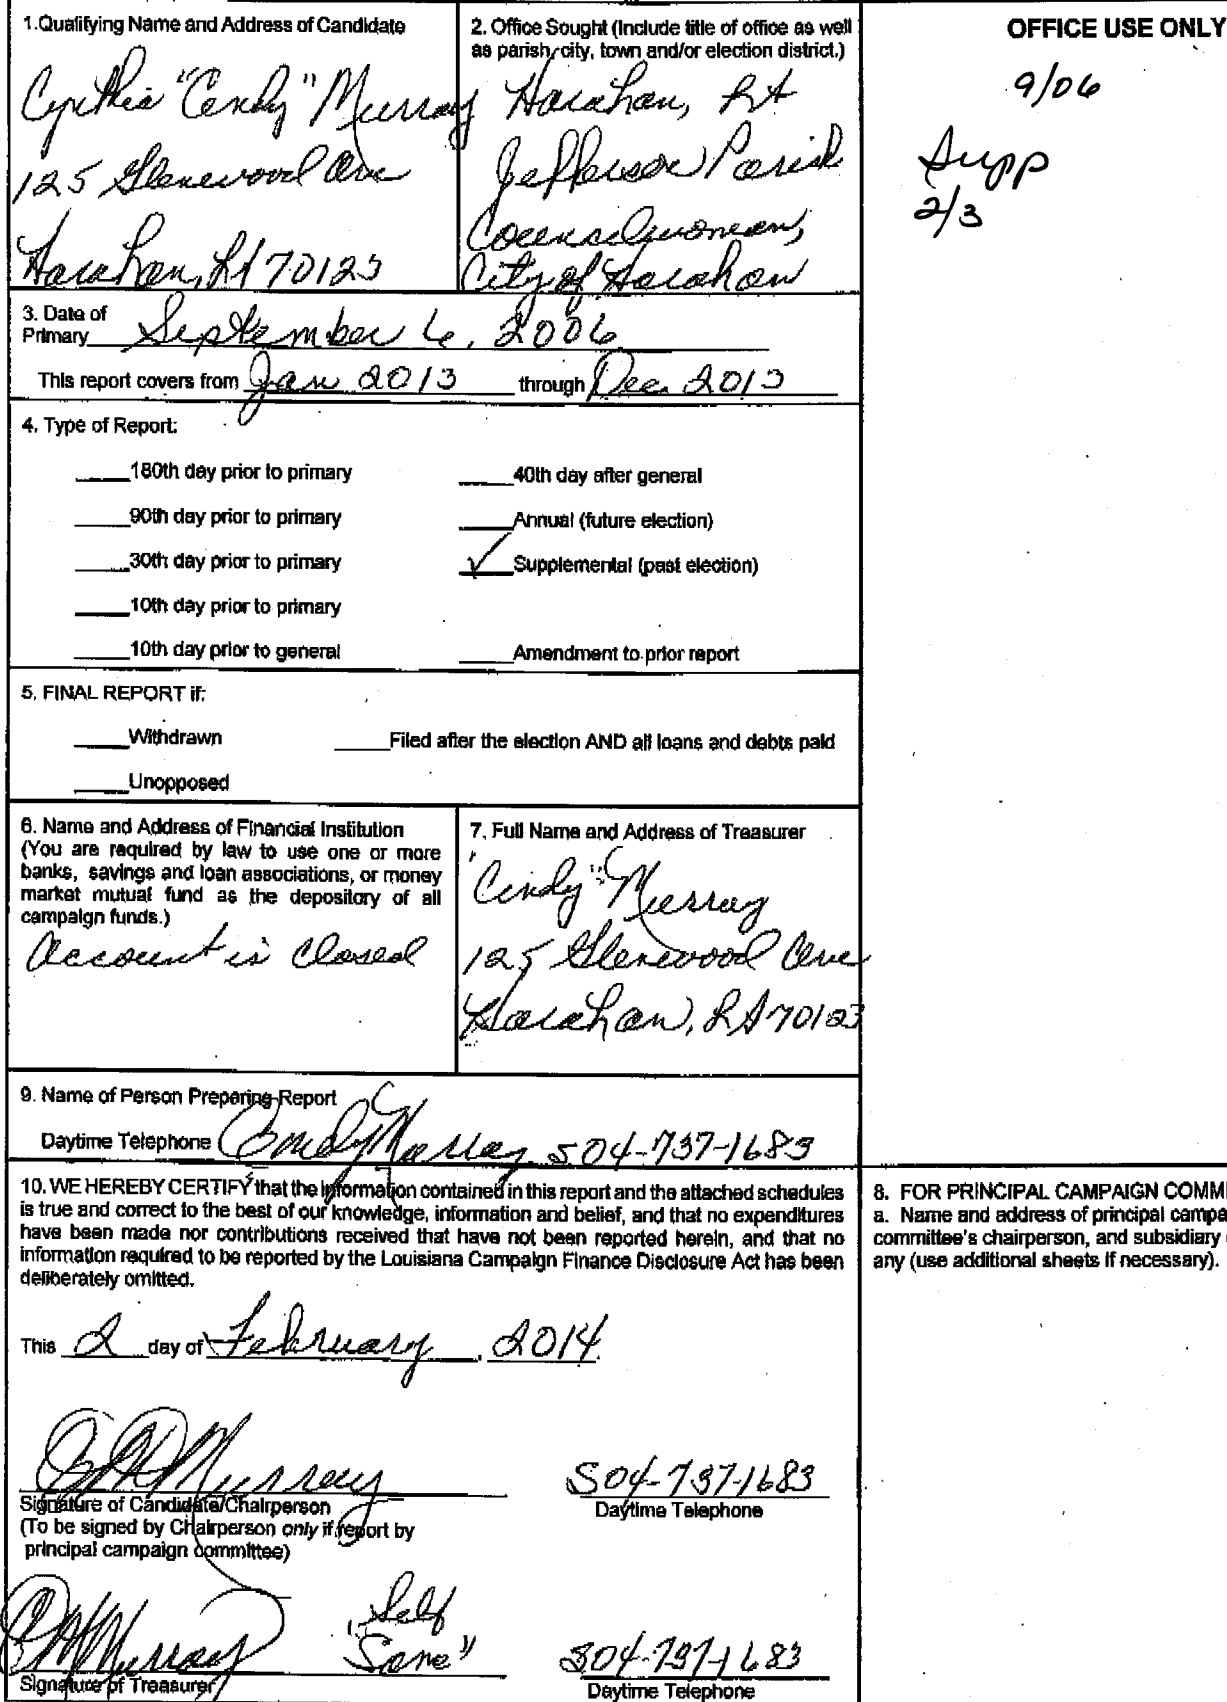 1.Qualifying Name and Address of Candidate
Cynthia "Cindy" Murray
125 Glenewood Ave
Harahan, LA 70123
2. Office Sought (Include title of office as well
as parish, city, town and/or election district.)
Harahan, LA
Jefferson Parish
Councilwoman,
City of Harahan
OFFICE USE ONLY
9/06
Supp
2/3
3. Date of
Primary September 6, 2006
This report covers from Jan 2013 through Dec 2013
4. Type of Report:
180th day prior to primary
40th day after general
90th day prior to primary
Annual (future election)
30th day prior to primary
✓ Supplemental (past election)
10th day prior to primary
10th day prior to general
Amendment to prior report
5. FINAL REPORT if:
Withdrawn
Filed after the election AND all loans and debts paid
Unopposed
6. Name and Address of Financial Institution
(You are required by law to use one or more
banks, savings and loan associations, or money
market mutual fund as the depository of all
campaign funds.)
Account is Closed
7. Full Name and Address of Treasurer
"Cindy" Murray
125 Glenewood Ave
Harahan, LA 70123
9. Name of Person Preparing Report
Daytime Telephone Cindy Murray 504-737-1683
10. WE HEREBY CERTIFY that the information contained in this report and the attached schedules
is true and correct to the best of our knowledge, information and belief, and that no expenditures
have been made nor contributions received that have not been reported herein, and that no
information required to be reported by the Louisiana Campaign Finance Disclosure Act has been
deliberately omitted.
This 2 day of February, 2014.
Murray
504-737-1683
Signature of Candidate/Chairperson
Daytime Telephone
(To be signed by Chairperson only if report by
principal campaign committee)
Murray
"Self
Same"
504-737-1683
Signature of Treasurer
Daytime Telephone
8. FOR PRINCIPAL CAMPAIGN COMMI
a. Name and address of principal campa
committee's chairperson, and subsidiary
any (use additional sheets if necessary).